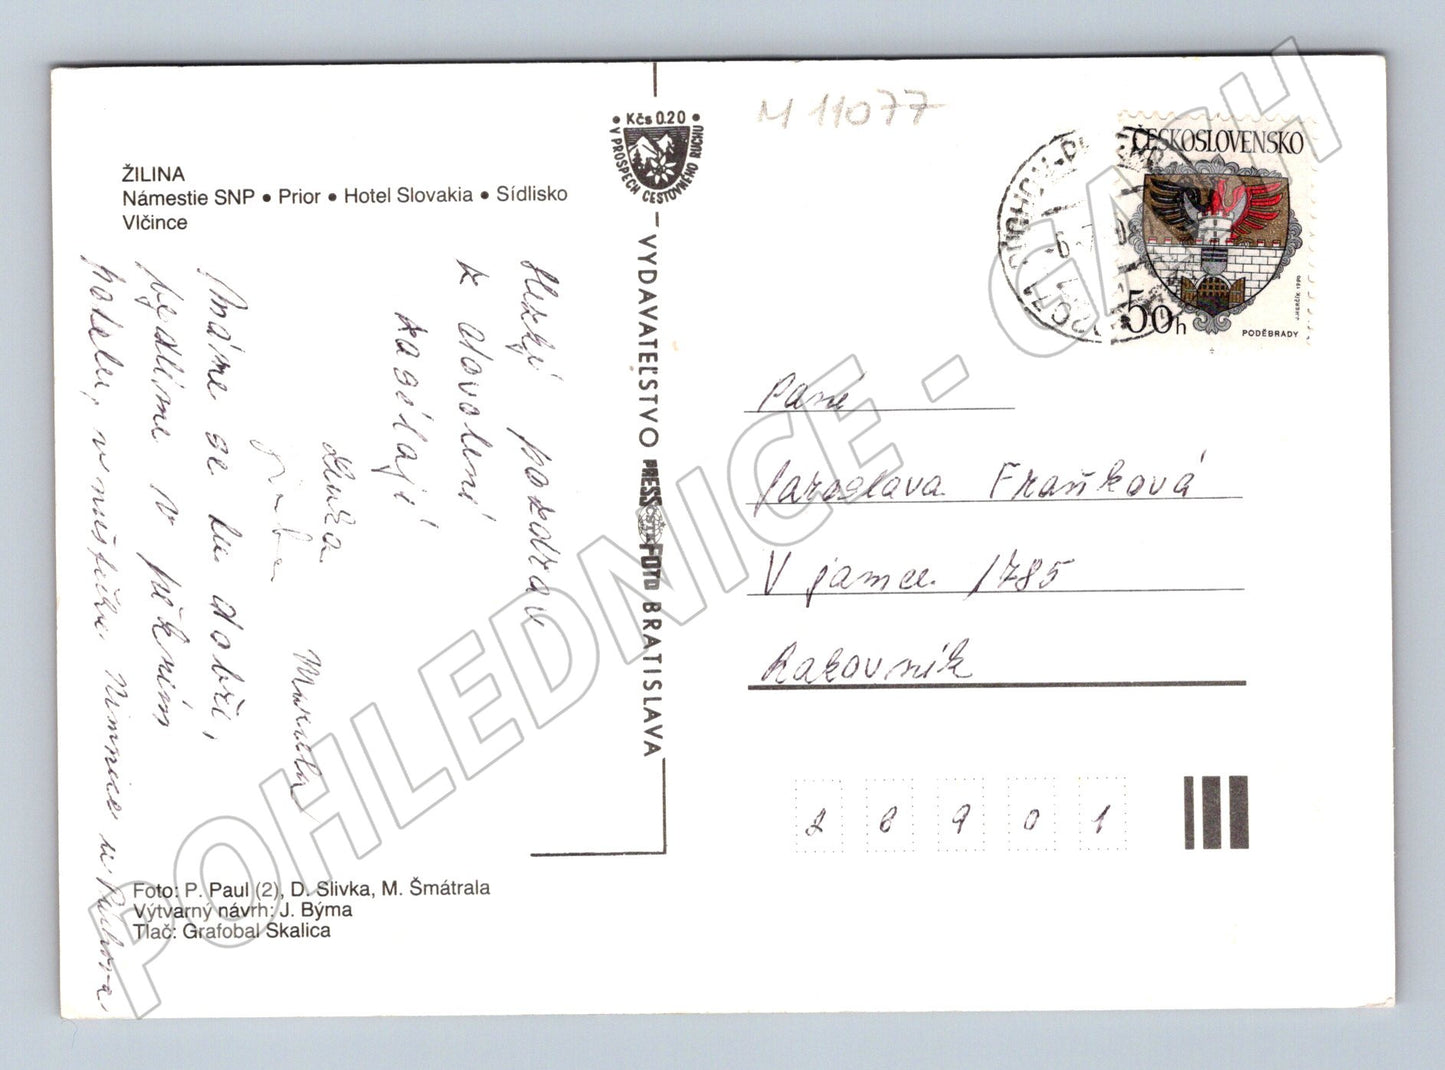 M 11077
ŽILINA
Námestie SNP • Prior • Hotel Slovakia • Sídlisko
Vlčince
• Kčs 0.20 •
V PROSPECH CESTOVNÉHO RUCHU
VYDAVATEĽSTVO PRESSFOTO BRATISLAVA
ČESKOSLOVENSKO
50h
J.HERČÍK 1990
PODĚBRADY
Hezký pozdrav
z dovolené
zasílají
Máme se tu dobře,
bydlíme v pěkném
hotelu, v městečku Nimnica u Púchova.
Paní
Jaroslava Fraňková
V jamce 1785
Rakovník
26901
Foto: P. Paul (2), D. Slivka, M. Šmátrala
Výtvarný návrh: J. Býma
Tlač: Grafobal Skalica
POHLEDNICE - GASH